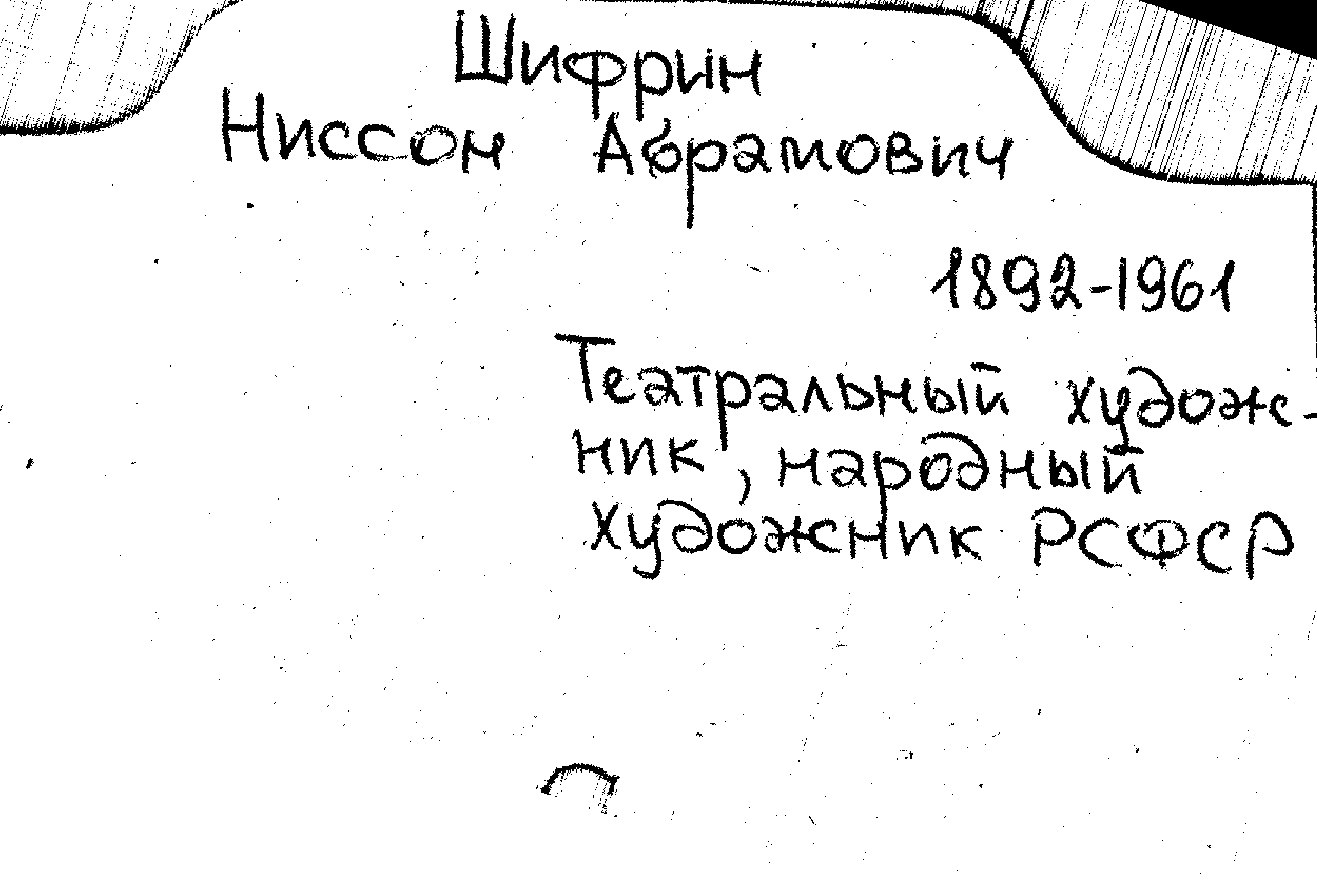 Шифрин
Ниссон Абрамович
1892-1961
Театральный худож-
ник, народный
художник РСФСР